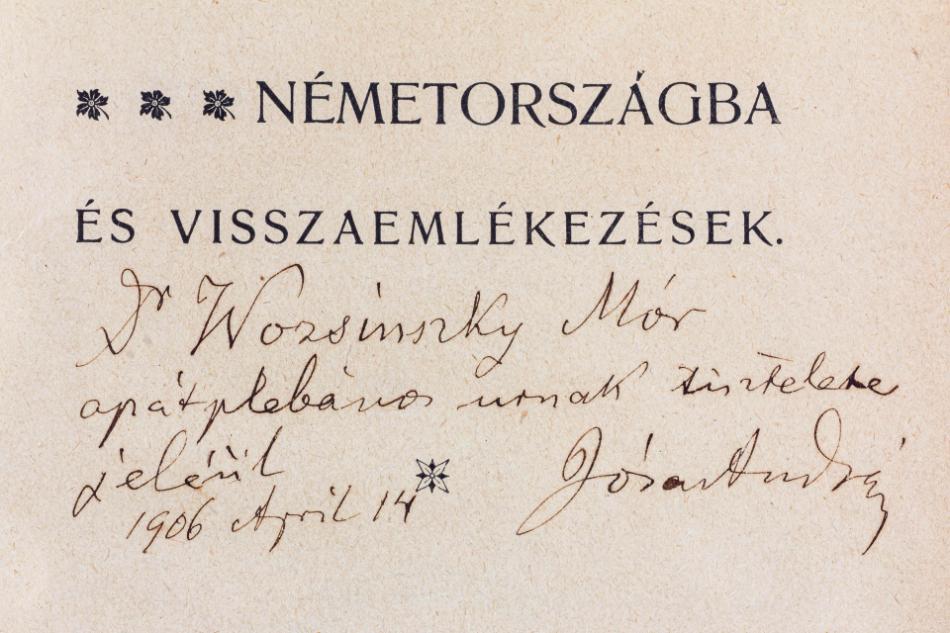 NÉMETORSZÁGBA
ÉS VISSZAEMLÉKEZÉSEK.
Dr Wozsinszky Mór
apátplebános urnak tisztelete
jeléül
1906 April 14
Jósa András